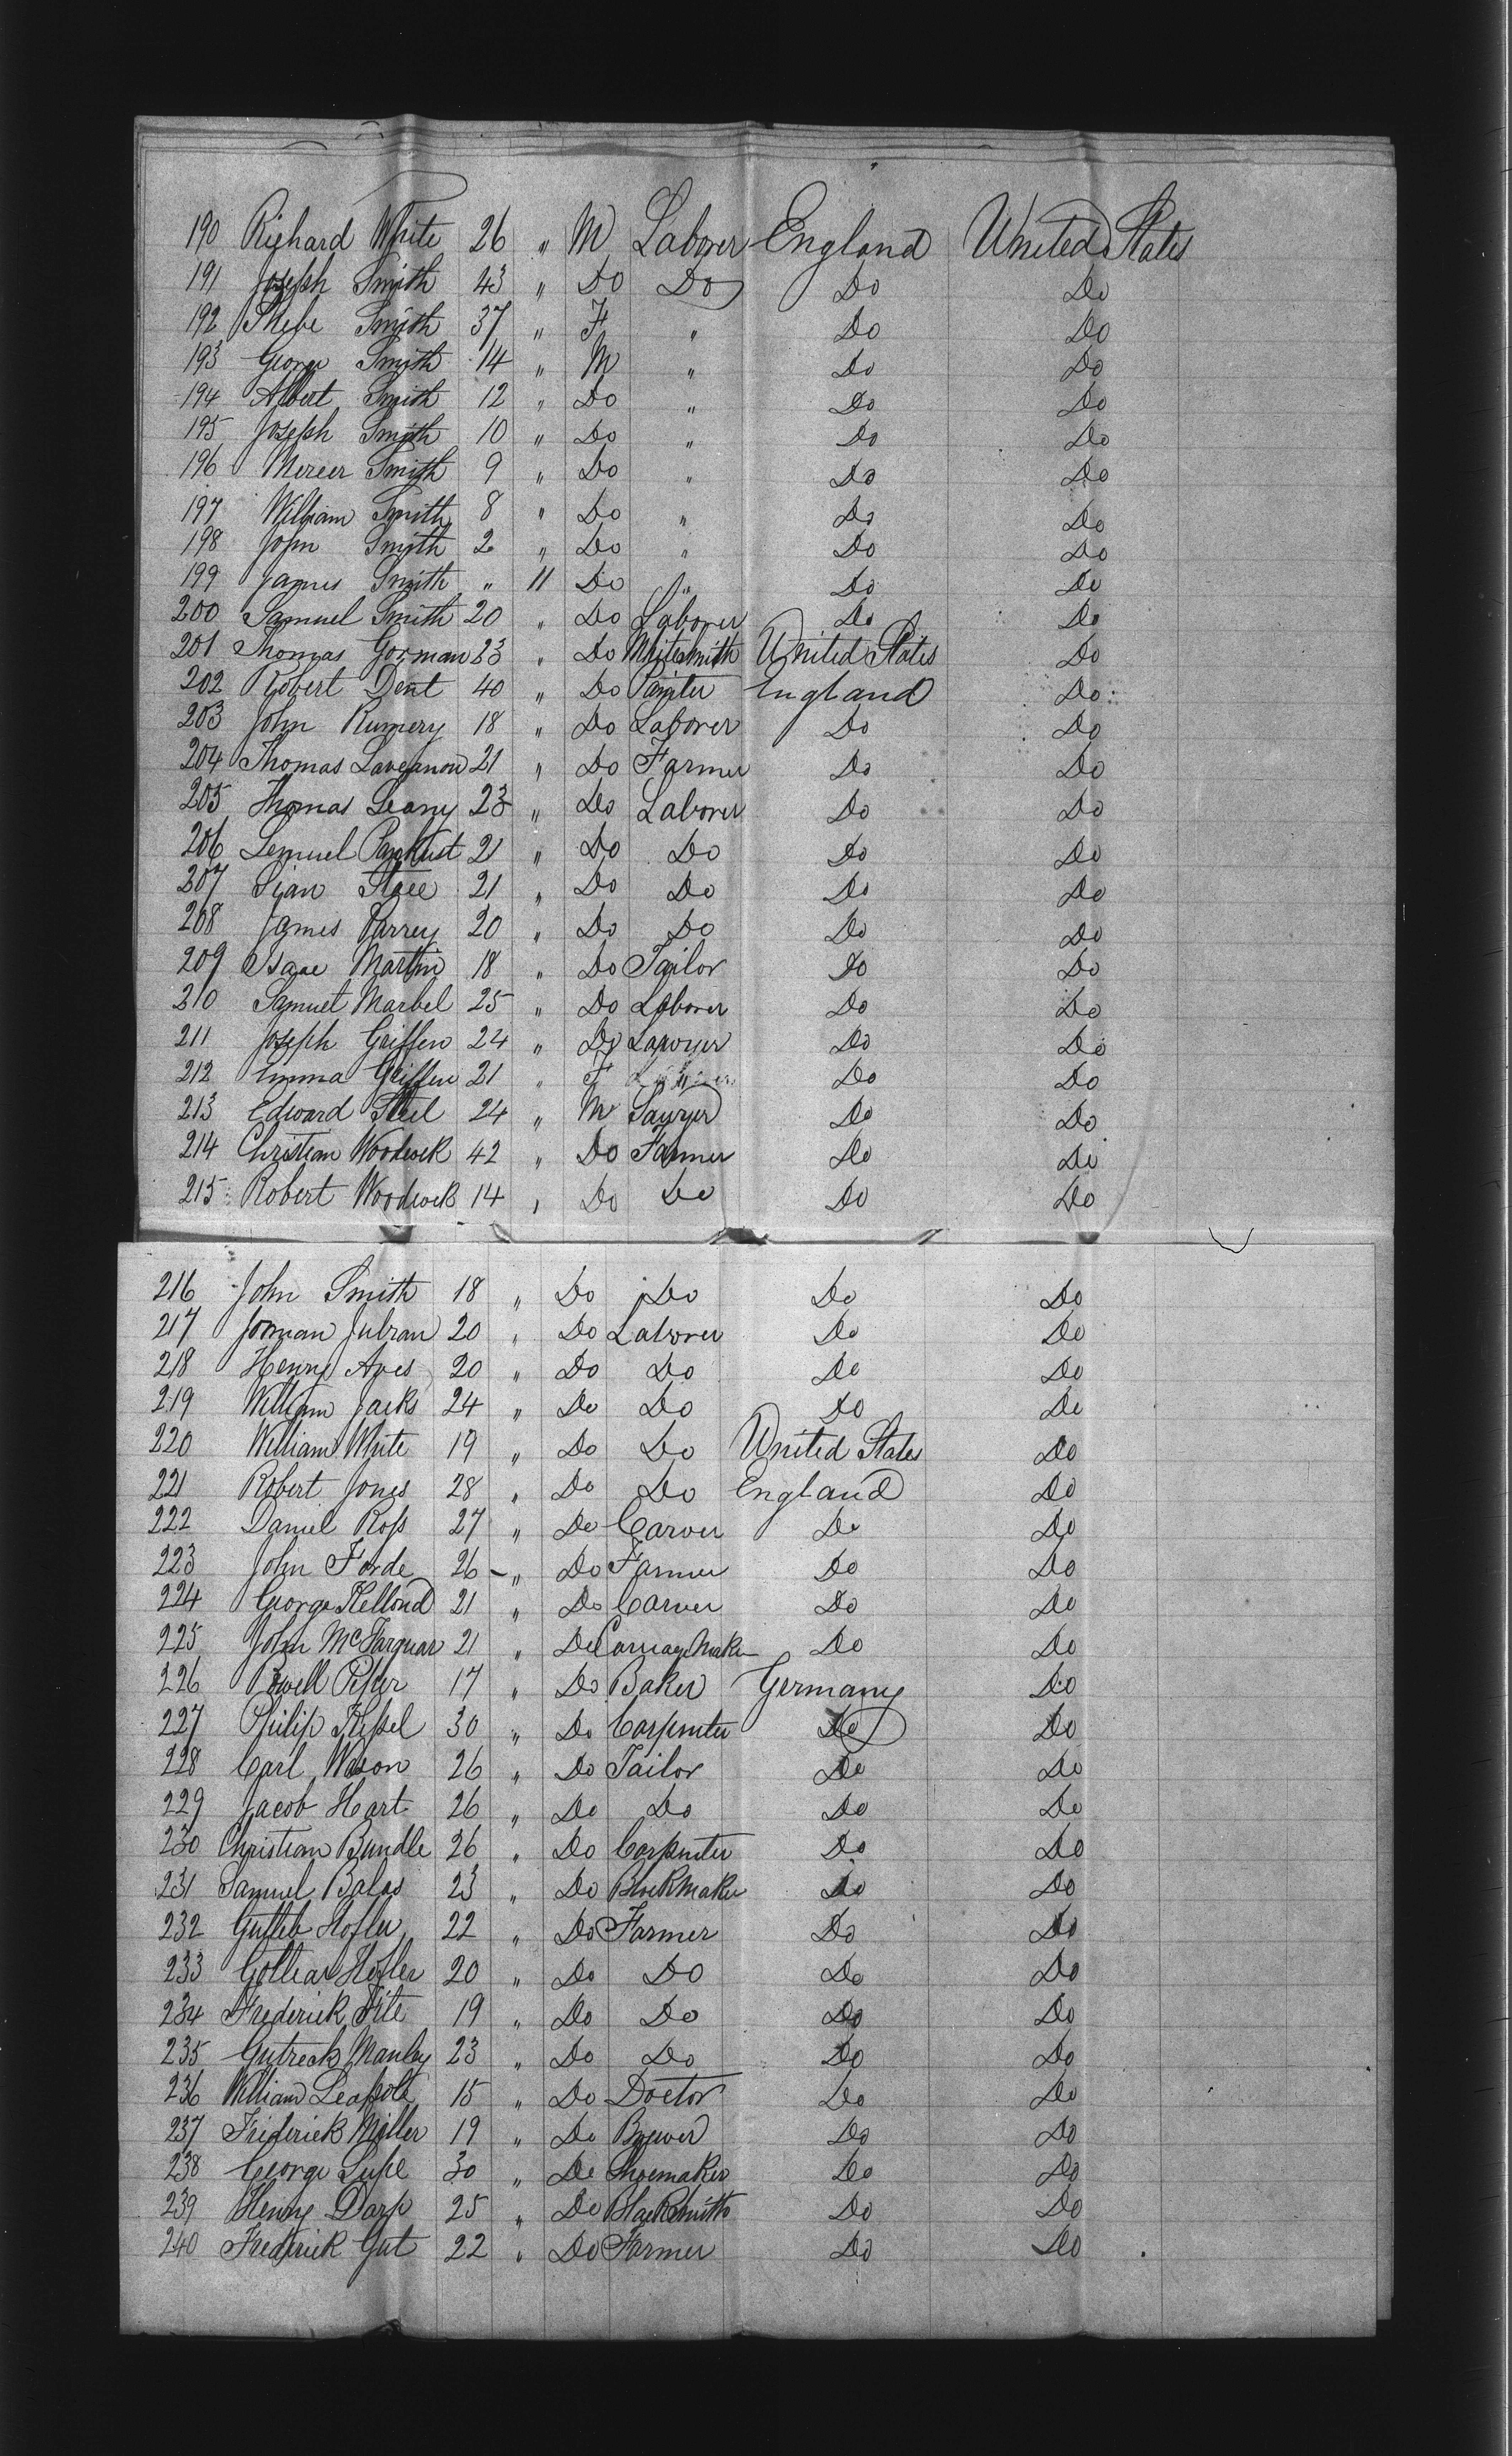 190 Richard White 26 " M Laborer England United States
191 Joseph Smith 43 " Do Do Do Do
192 Phebe Smith 37 " F " Do Do
193 George Smith 14 " M " Do Do
194 Albert Smith 12 " Do " Do Do
195 Joseph Smith 10 " Do " Do Do
196 Mercer Smith 9 " Do " Do Do
197 William Smith 8 " Do " Do Do
198 John Smith 2 " Do " Do Do
199 James Smith " 11 Do " Do Do
200 Samuel Smith 20 " Do Laborer Do Do
201 Thomas Gorman 23 " Do Whitesmith United States Do
202 Robert Dent 40 " Do Painter England Do
203 John Rumery 18 " Do Laborer Do Do
204 Thomas 21 " Do Farmer Do Do
205 Thomas Leany 23 " Do Laborer Do Do
206 Lemuel 21 " Do Do Do Do
207 21 " Do Do Do Do
208 James Parrey 20 " Do Do Do Do
209 Isaac Martin 18 " Do Tailor Do Do
210 Samuel Marbel 25 " Do Laborer Do Do
211 Joseph Griffen 24 " Do Do Do
212 Emma Griffen 21 " F Do Do
213 Edward Steel 24 " M Sawyer Do Do
214 Christian Woodcock 42 " Do Farmer Do Do
215 Robert Woodcock 14 " Do Do Do Do
216 John Smith 18 " Do Do Do Do
217 20 " Do Laborer Do Do
218 Henry Aves 20 " Do Do Do Do
219 William Jacks 24 " Do Do Do Do
220 William White 19 " Do Do United States Do
221 Robert Jones 28 " Do Do England Do
222 Daniel Ross 27 " Do Carver Do Do
223 John Forde 26 " Do Farmer Do Do
224 George Kellond 21 " Do Carver Do Do
225 John McFarquar 21 " Do Carriage Maker Do Do
226 17 " Do Baker Germany Do
227 Philip Kessel 30 " Do Carpenter Do Do
228 Carl Wason 26 " Do Tailor Do Do
229 Jacob Hart 26 " Do Do Do Do
230 Christian Bundle 26 " Do Carpenter Do Do
231 Samuel Balas 23 " Do Do Do
232 Gutleb Hofler 22 " Do Farmer Do Do
233 Hofler 20 " Do Do Do Do
234 Frederick Fite 19 " Do Do Do Do
235 Gutreck Manley 23 " Do Do Do Do
236 William Leapolt 15 " Do Doctor Do Do
237 Friderick Miller 19 " Do Brewer Do Do
238 George 30 " Do Shoemaker Do Do
239 Henry Darp 25 " Do Blacksmith Do Do
240 Frederick Gut 22 " Do Farmer Do Do